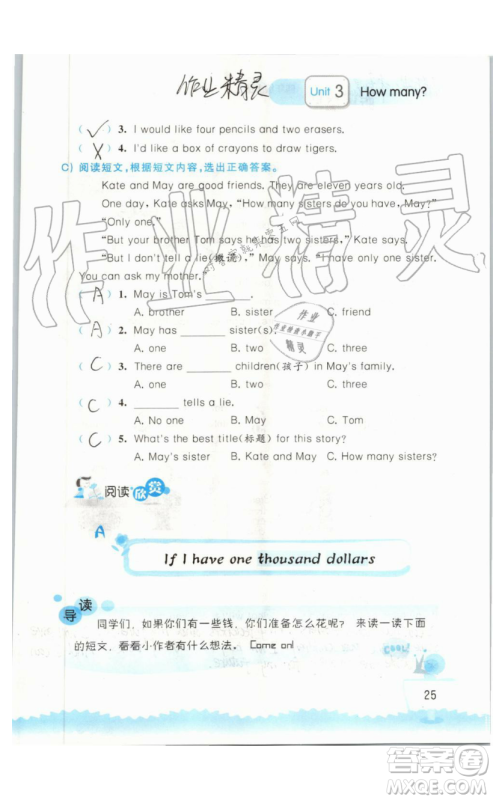 作业精灵
Unit 3 How many?
(✓) 3. I would like four pencils and two erasers.
(X) 4. I'd like a box of crayons to draw tigers.
C) 阅读短文,根据短文内容,选出正确答案。
Kate and May are good friends. They are eleven years old.
One day, Kate asks May, "How many sisters do you have, May?"
"Only one."
"But your brother Tom says he has two sisters," Kate says.
"But I don't tell a lie(撒谎)," May says. "I have only one sister.
You can ask my mother."
(A) 1. May is Tom's ______.
A. brother B. sister C. friend
(A) 2. May has ______ sister(s).
A. one B. two C. three
(C) 3. There are ______ children(孩子) in May's family.
A. one B. two C. three
(C) 4. ______ tells a lie.
A. No one B. May C. Tom
(C) 5. What's the best title(标题) for this story?
A. May's sister B. Kate and May C. How many sisters?
阅读欣赏
A
If I have one thousand dollars
导读
同学们,如果你们有一些钱,你们准备怎么花呢? 来读一读下面
的短文,看看小作者有什么想法。 Come on!
Cool!
25
作业精灵
作业
精灵
答案圈